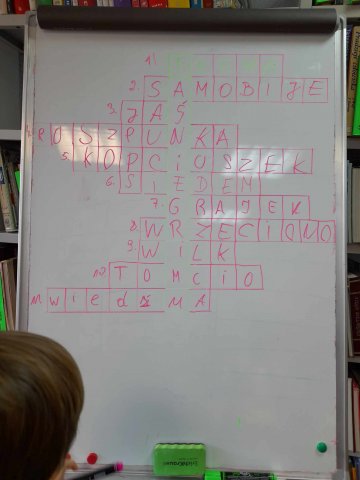 1)
2. SAMOBIJE
3. JAŚ
4. POSZPUNKA
5. KOPCIUSZEK
6. SIEDEM
7. GRAJEK
8. WRZECIONO
9. WILK
10. TOMCIO
11. wiedźMA